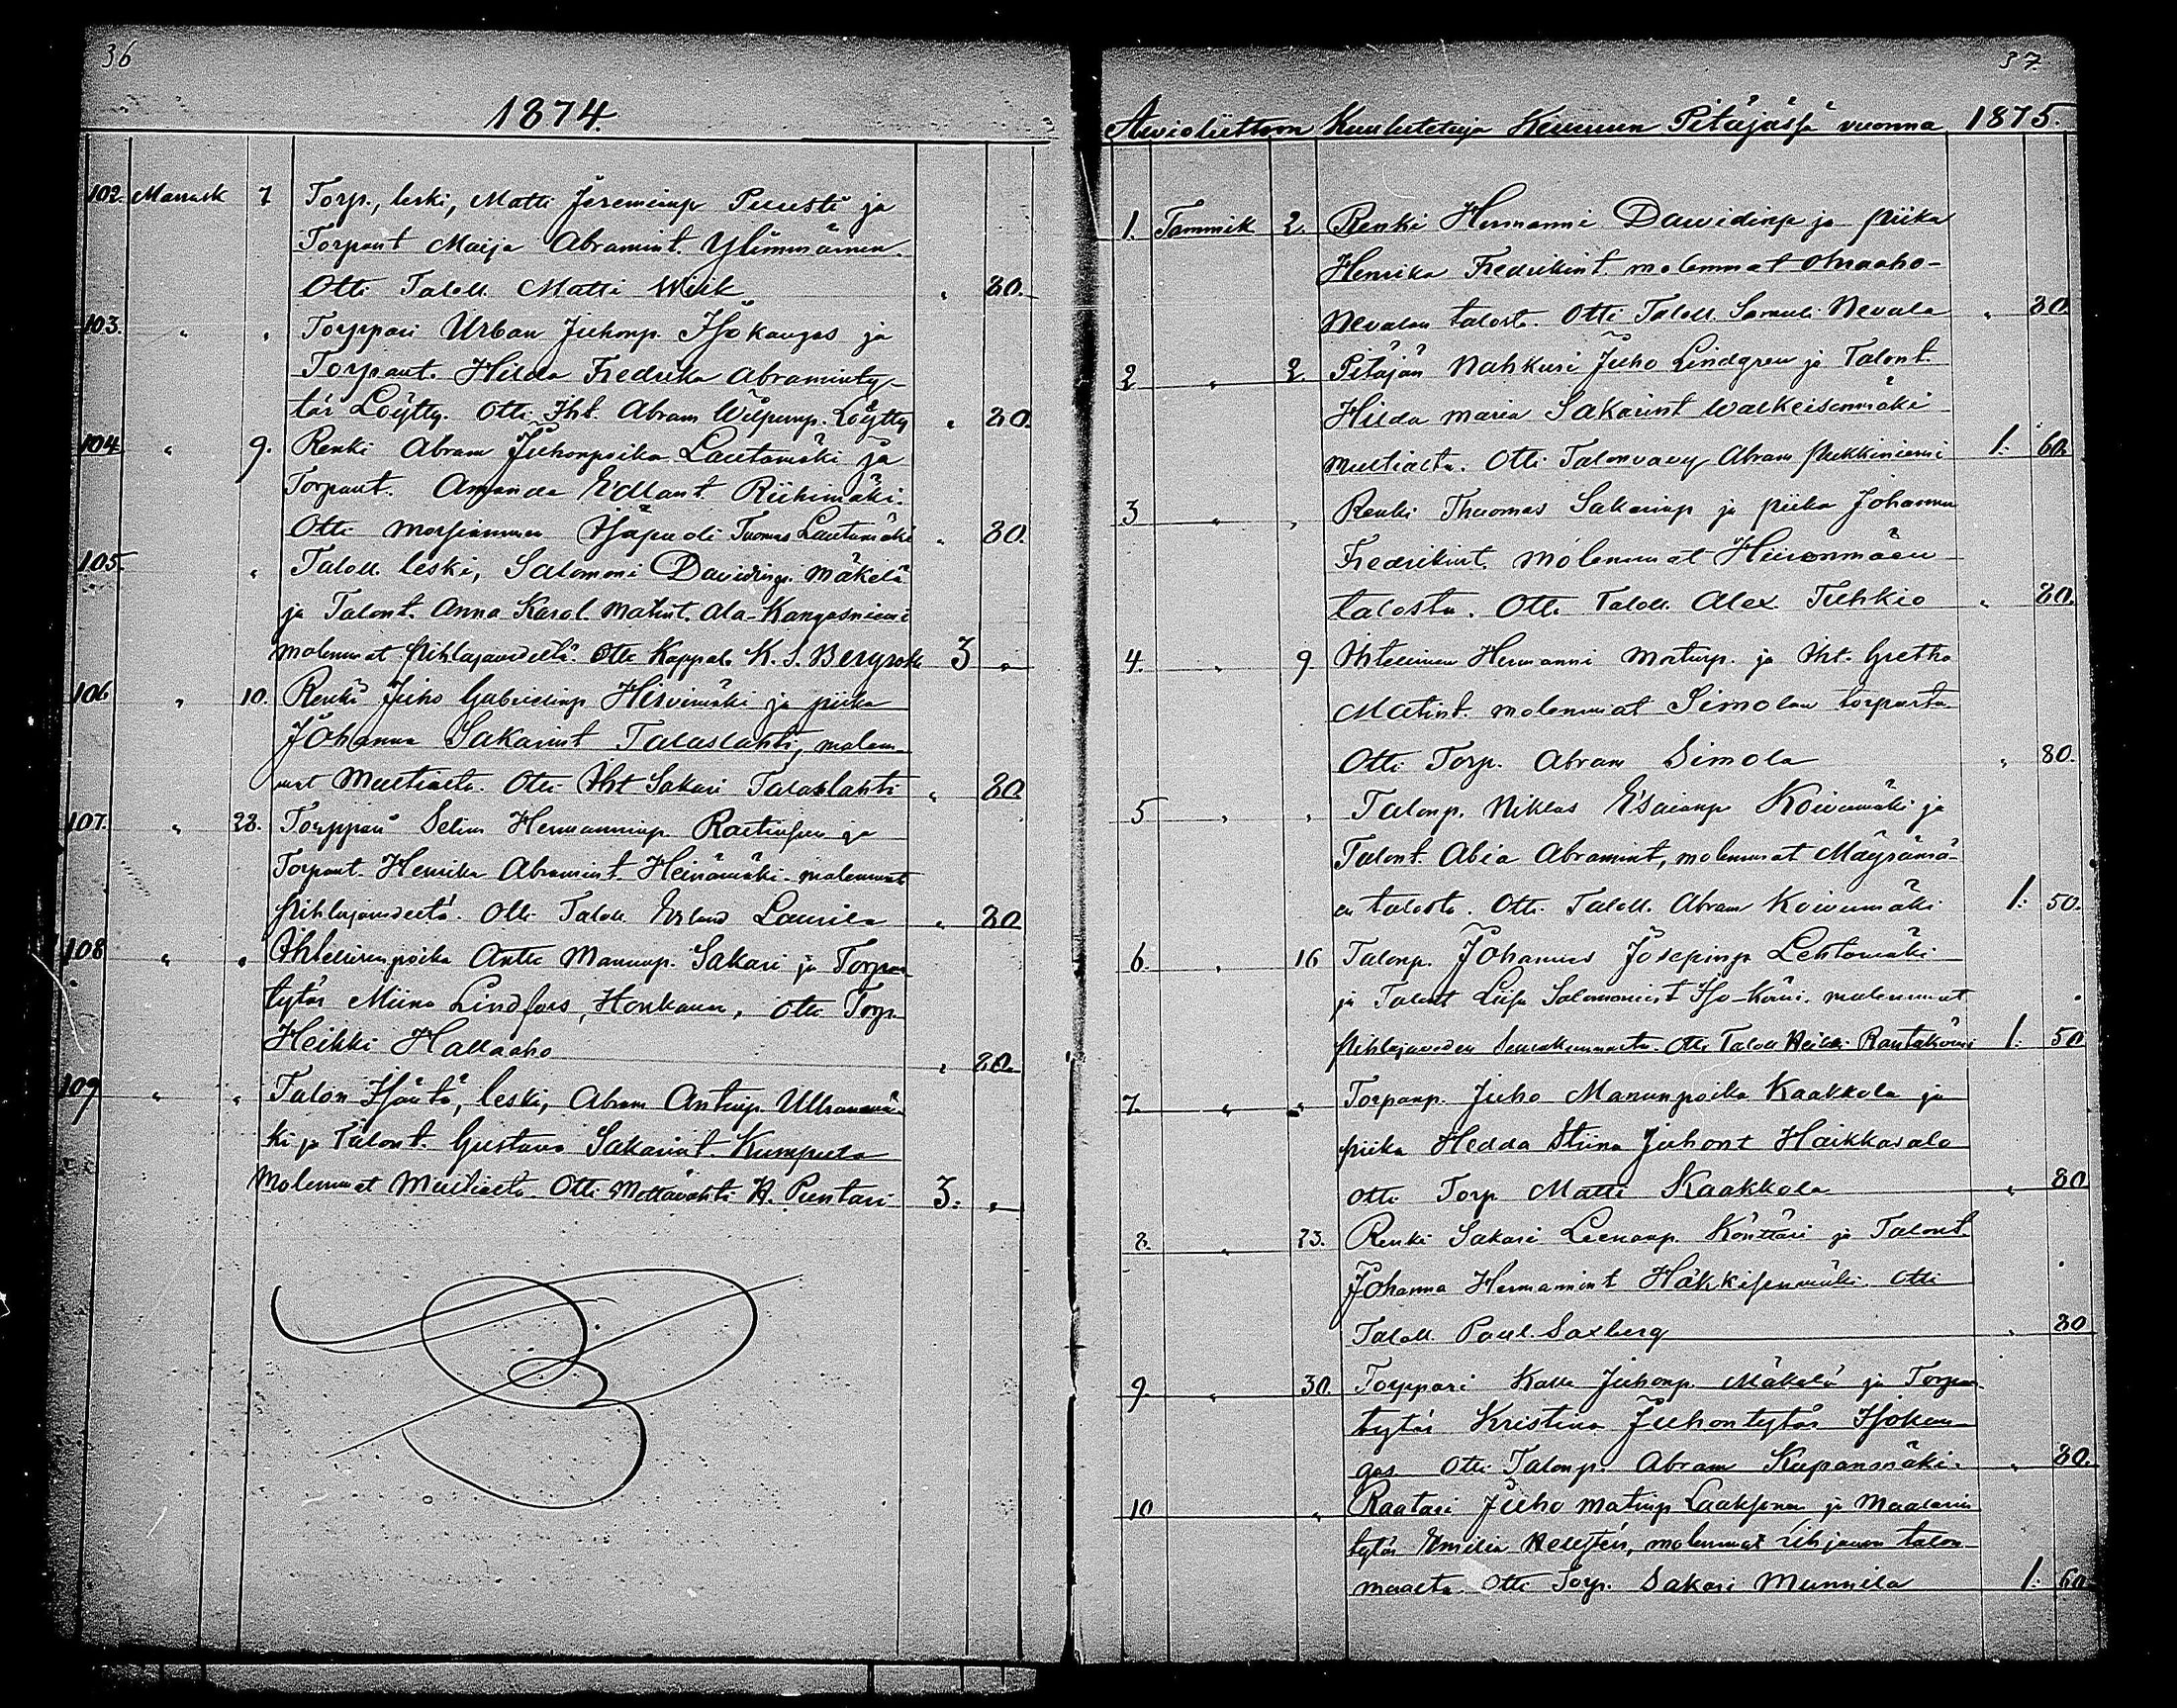 36
1874.
102. Marrask 7 Torp., leski, Matti Jeremiinp Puusti ja
Torpant Maija Abramint. Ylimmäinen.
Otti Taloll. Matti Wiik " 80.
103. " " Torppari Urban Juhonp. Isokangas ja
Torpant. Hilda Fredrika Abraminty-
tär Löytty. Otti Iht. Abram Wilpunp. Löytty " 80.
104 " 9. Renki Abram Juhonpoika Lautamäki ja
Torpant. Amanda Edlant. Riihimäki.
Otti morsiammen Tuomas Lautamäki " 80.
105. " Taloll. leski, Salomoni Davidinp. Mäkelä
ja Talont. Anna Karol. Matint. Ala-Kangasniemi
molemmat Pihlajavedeltä. Otti Kappal. K. S. Bergroth 3 "
106 " 10. Renki Juho Gabrielinp Hirvimäki ja piika
Johanna Sakarint Talaslahti, molem-
mat Multialta. Otti Iht Sakari Talaslahti " 80
107. " 28. Torppari Selim Hermanninp ja
Torpant. Henrika Abramint. Heinämäki molemmat
Pihlajavedeltä. Otti Taloll Erland Laurila " 80
108 " " Ihtellisenpoika Antti Manunp. Sakari ja Torpan
tytär Miina Lindfors, Honkanen, Otti Torp
Heikki Hallaaho " 80.
109 " " Talon Isäntä, leski, Abram Antinp Ullanmä-
ki ja Talont. Gustava Sakarint Kumpula
Molemmat Multialta Otti Mettävahti H. Puntari 3. "
37
Awioliittoon Kuulutetuja Keuruun Pitäjässä vuonna 1875.
1. Tammik 2. Renki Hermanni Dawidinp ja piika
Henrika Fredrikint. molemmat Ahvaho-
Nevalan talosta. Otti Taloll. Samuli Nevala " 80
2 " 2. Pitäjän Nahkuri Juho Lindgren ja Talont.
Hilda Maria Sakarint Walkeisenmäki
Multialta. Otti Talonvaey Abram Pukkiniemi 1. 60.
3 " " Renki Thuomas Sakarinp ja piika Johanna
Fredrikint. molemmat Heinonmäen
talosta. Otti Taloll. Alex. Tuhkio " 80.
4. " 9 Ihtellinen Hermanni Matinp. ja Iht. Gretha
Matint. molemmat Simolan torpasta
Otti Torp. Abram Simola " 80.
5 " " Talonp. Niklas Esaianp Koivumäki ja
Talont. Abia Abramint, molemmat Mäyrämä-
en talosta. Otti Taloll. Abram Koivumäki 1. 50.
6. " 16 Talonp. Johannes Josepinp Lehtomäki
ja Talont Liisa Salomonint Iso-Köni. molemmat
Pihlajaveden Seurakunnasta. Otti Taloll Heikki Rantaköni 1. 50
7. " " Torpanp. Juho Manunpoika Kaakkola ja
piika Hedda Stiina Juhont Haikkasalo
Otti Torp Matti Kaakkola " 80
8. " 23. Renki Sakari Leenanp. Könttäri ja Talont.
Johanna Hermannint Häkkisenmäki. Otti
Taloll Paul Saxberg " 80
9. " 30. Torppari Kalle Juhonp. Mäkelä ja Torpan
tytär Kristina Juhontytär Isokan-
gas Otti Talonp. Abram Kupanmäki. " 80.
10 " Raatari Juho Matinp Laaksonen ja Maalarin
tytär Emilia Hellstén, molemmat talon
maalta. Otti Torp. Sakari Munnila 1. 60